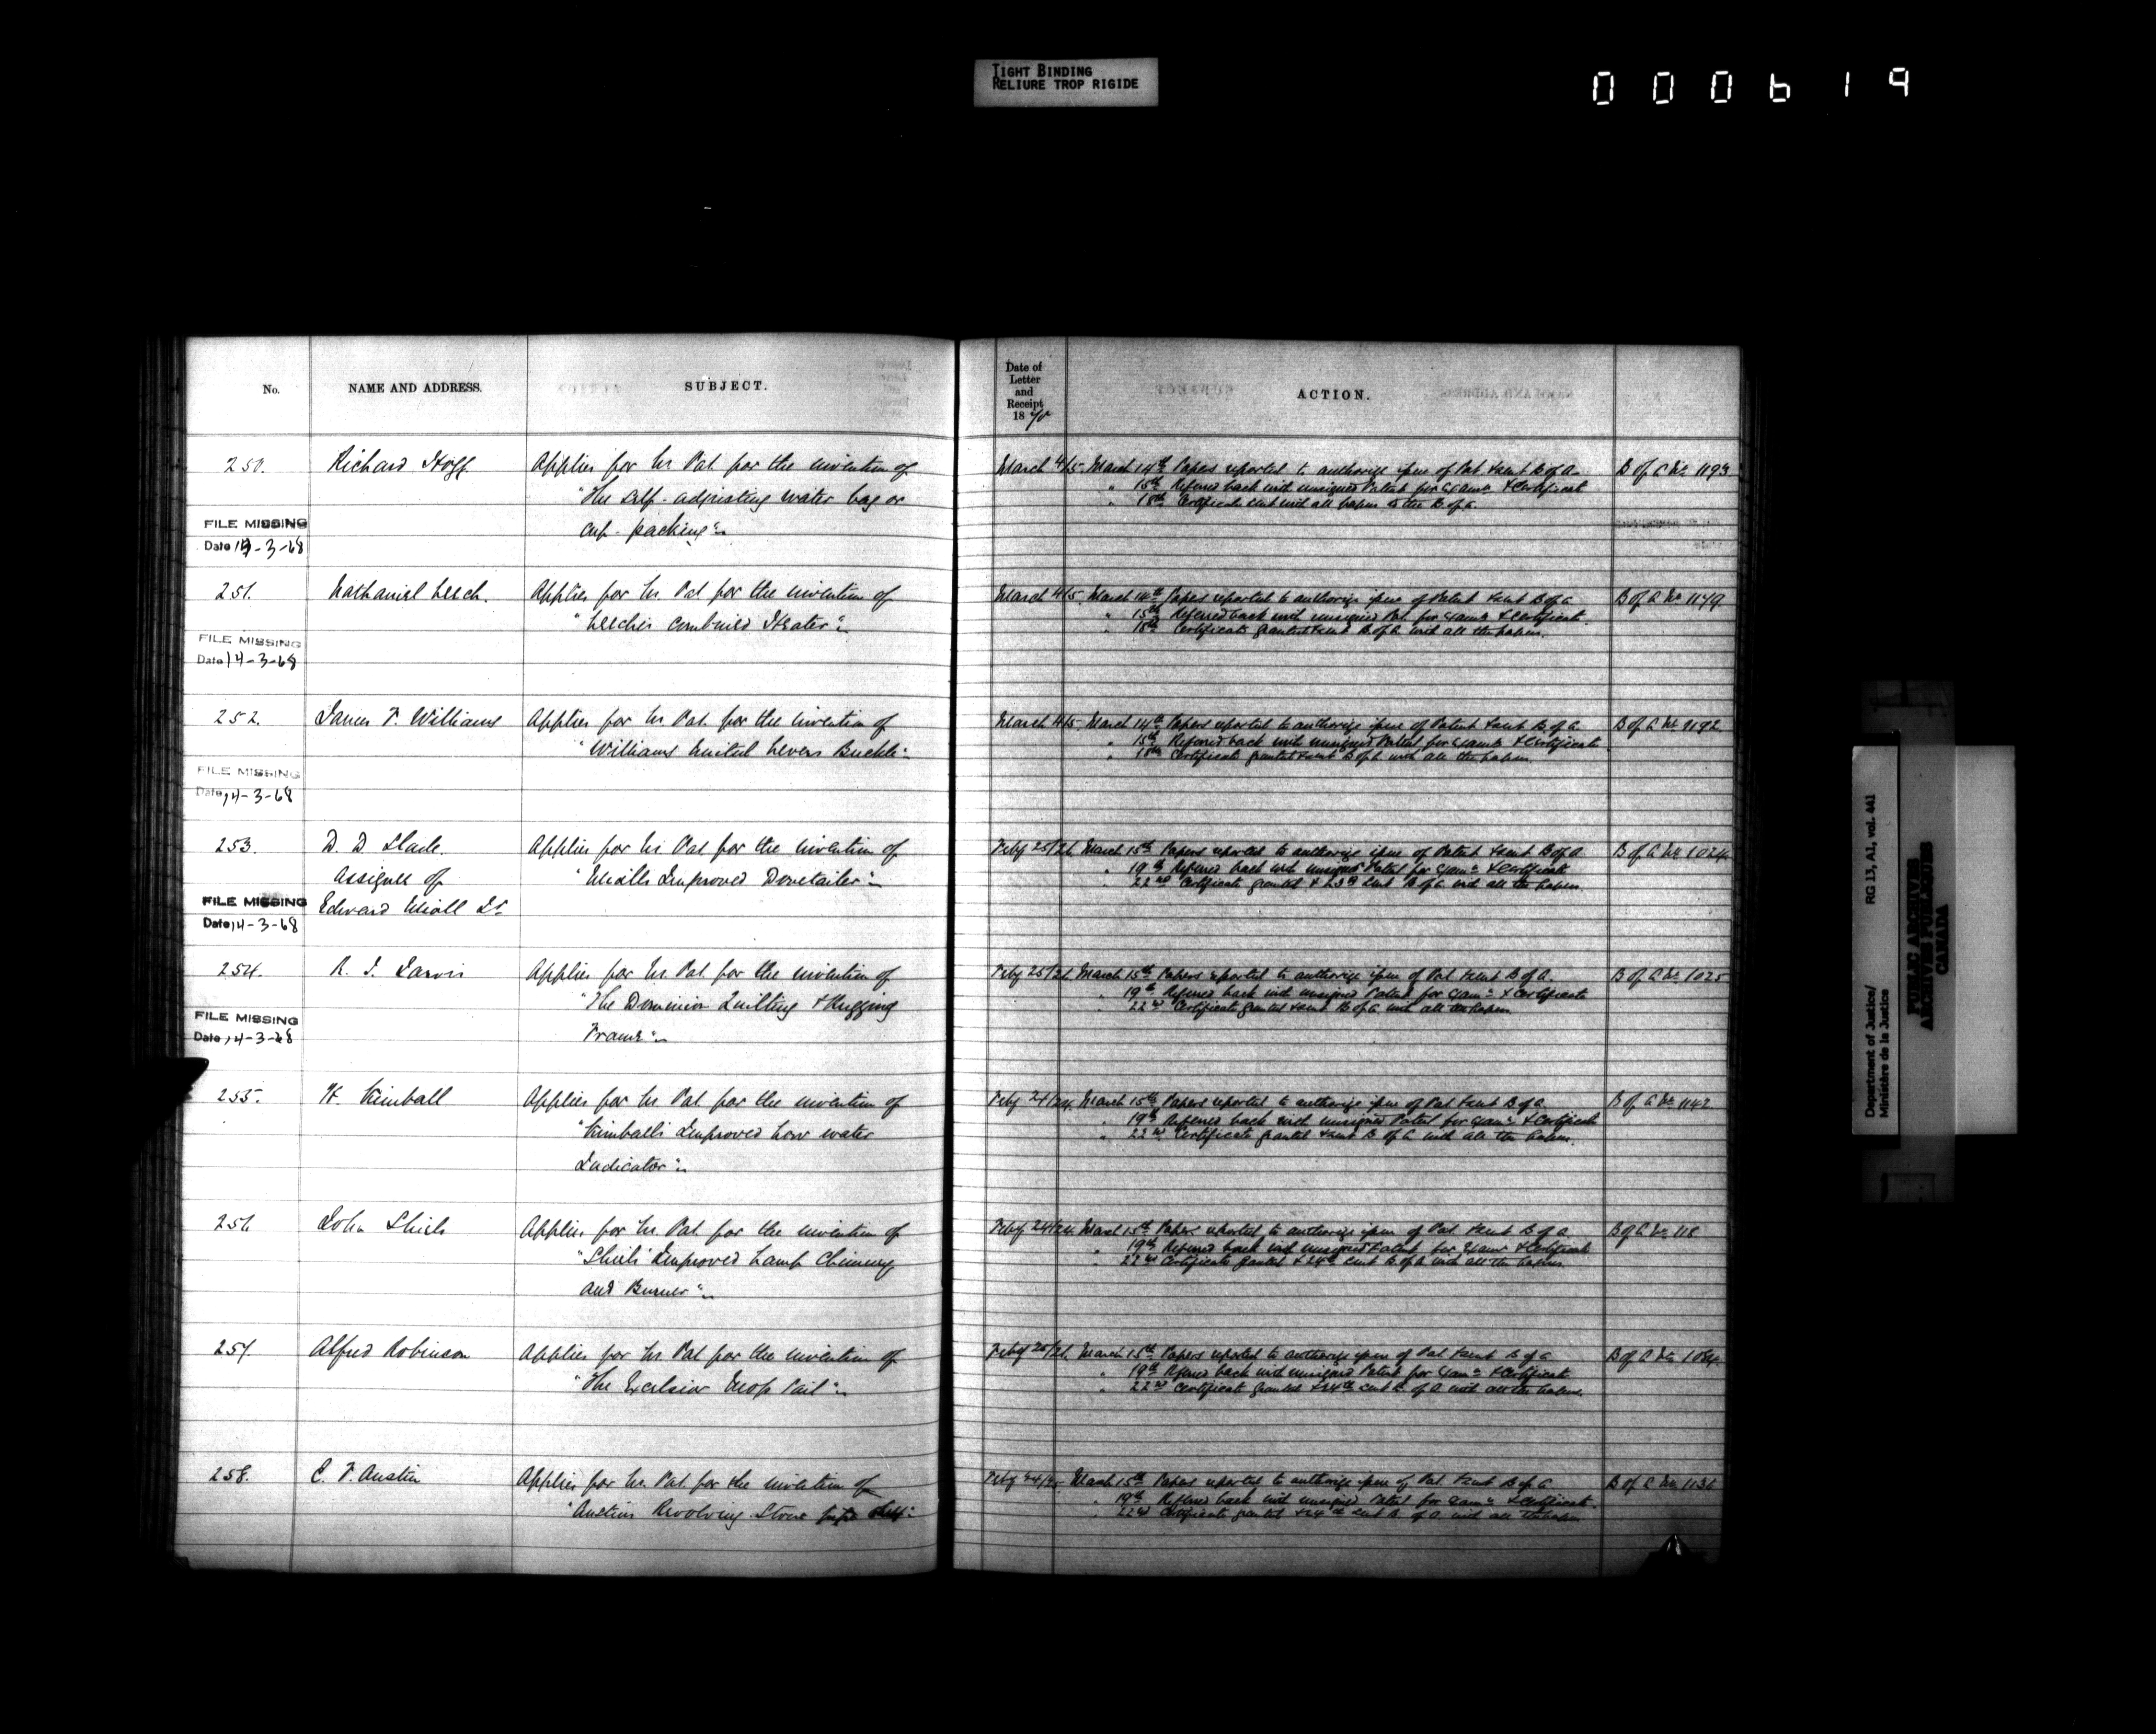 TIGHT BINDING
RELIURE TROP RIGIDE
000619
No.
NAME AND ADDRESS.
SUBJECT.
Date of
Letter
and
Receipt
1870
ACTION.
250. Richard Hoff Applies for Ls. Pat. for the invention of
"The Self-adjusting water bag or
cup-packing"
FILE MISSING
Date 14-3-68
March 4/5. March 14th Papers reported to authorize issue of Pat. & sent B of A. B of A No. 1193
" 15th Referred back with unsigned Patent for Exam.n & Certificate
" 18th Certificate sent with all papers to the B of A.
251. Nathaniel Leech. Applies for Ls. Pat. for the invention of
"Leech's Combined Heater"
FILE MISSING
Date 14-3-68
March 4/5. March 14th Papers reported to authorize issue of Patent & sent B of A. B of A No. 1179
" 15th Referred back with unsigned Pat. for Exam.n & Certificate.
" 18th Certificate granted & sent B of A with all the papers.
252. James T. Williams Applies for Ls. Pat. for the invention of
"Williams United Levers Buckle"
FILE MISSING
Date 14-3-68
March 4/5. March 14th Papers reported to authorize issue of Patent & sent B. of A. B of A No. 1192
" 15th Referred back with unsigned Patent for Exam.n & Certificate
" 18th Certificate granted & sent B of A with all the papers.
253. D. D. Slade. Applies for Ls. Pat. for the invention of
Assignee of "Improved Dovetailer"
Edward Jr.
FILE MISSING
Date 14-3-68
Feby 25/26. March 15th Papers reported to authorize issue of Patent & sent B of A. B of A No. 1024
" 19th Referred back with unsigned Patent for Exam.n & Certificate
" 22nd Certificate granted & 23rd sent B of A with all the papers.
254. R. J. Jarvis Applies for Ls. Pat. for the invention of
"The Dominion Quilting & Rugging
Frame"
FILE MISSING
Date 14-3-68
Feby 25/26. March 15th Papers reported to authorize issue of Pat. & sent B of A. B of A No. 1025
" 19th Referred back with unsigned Patent for Exam.n & Certificate
" 22nd Certificate granted & sent B of A with all the papers.
255. H. Kimball Applies for Ls. Pat. for the invention of
"Kimball's Improved Low water
Indicator"
Feby 24/24. March 15th Papers reported to authorize issue of Pat. & sent B of A. B of A No. 1142
" 19th Referred back with unsigned Patent for Exam.n & Certificate
" 22nd Certificate granted & sent B of A with all the papers.
256 John Shiels Applies for Ls. Pat. for the invention of
"Shiels' Improved Lamp Chimney
and Burner"
Feby 24/24. March 15th Papers reported to authorize issue of Pat. & sent B of A B of A No. 118
" 19th Referred back with unsigned Patent for Exam.n & Certificate
" 22nd Certificate granted & 24th sent B of A with all the papers.
257. Alfred Robinson Applies for Ls. Pat. for the invention of
"The Excelsior Mop Pail"
Feby 25/26. March 15th Papers reported to authorize issue of Pat. & sent B of A B of A No. 1084
" 19th Referred back with unsigned Patent for Exam.n & Certificate
" 22nd Certificate granted & 24th sent B of A with all the papers.
258. C. F. Austin Applies for Ls. Pat. for the invention of
"Austins Revolving Stove pipe
Feby 24/25. March 15th Papers reported to authorize issue of Pat. & sent B of A B of A No. 1136
" 19th Referred back with unsigned Patent for Exam.n & Certificate.
" 22nd Certificate granted & 24th sent B. of A. with all the papers
Department of Justice/ RG 13, A1, vol. 441
Ministère de la Justice
PUBLIC ARCHIVES
ARCHIVES PUBLIQUES
CANADA